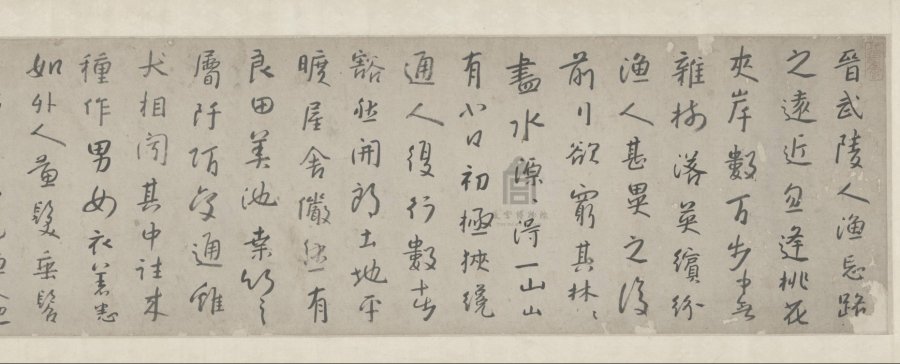 晉武陵人漁忘路
之遠近忽逢桃花
夾岸數百步中無
雜樹落英繽紛
漁人甚異之復
前行欲窮其林〻
盡水源〻得一山山
有小口初極狹纔
通人復行數十步
豁然開朗土地平
曠屋舍儼然有
良田美池桑竹之
屬阡陌交通雞
犬相聞其中往來
種作男女衣著悉
如外人黃髮垂髫
故宮博物院